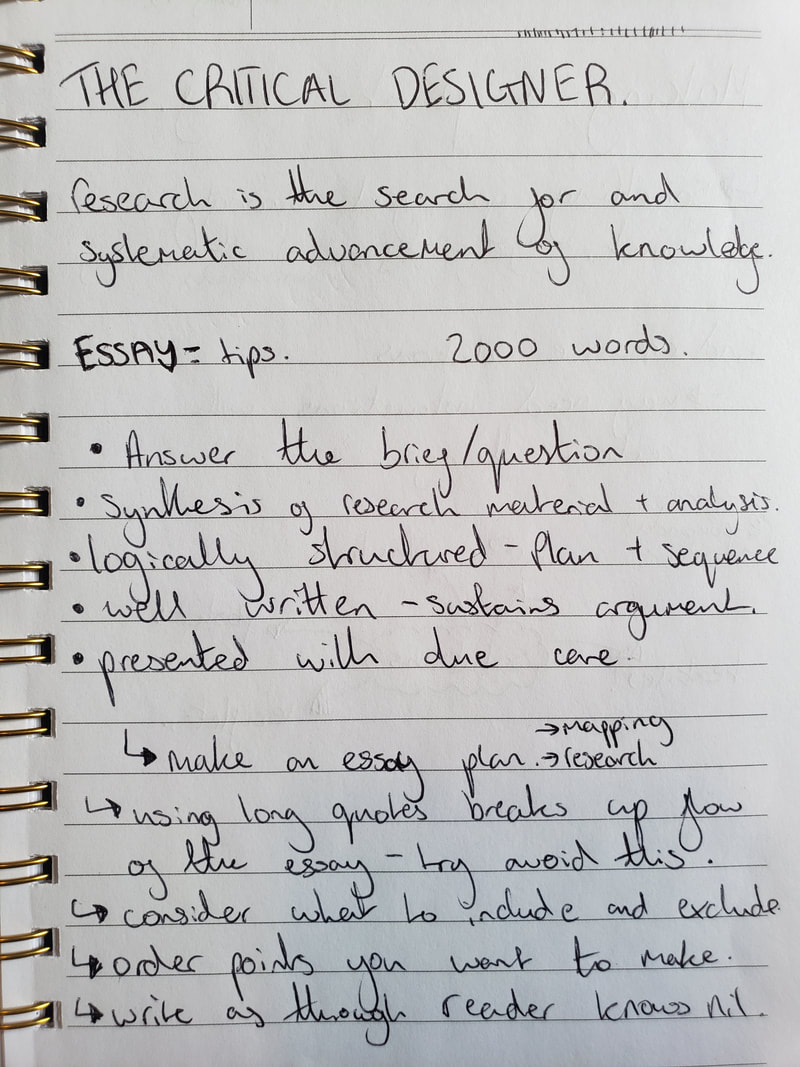 THE CRITICAL DESIGNER.
research is the search for and
systematic advancement of knowledge.
ESSAY = tips. 2000 words.
• Answer the brief/question
• Synthesis of research material + analysis.
• logically structured - plan + sequence
• well written - sustains argument.
• presented with due care.
→ mapping
↳ make an essay plan. → research
↳ using long quotes breaks up flow
of the essay - try avoid this.
↳ consider what to include and exclude
↳ order points you want to make.
↳ write as through reader knows nil.